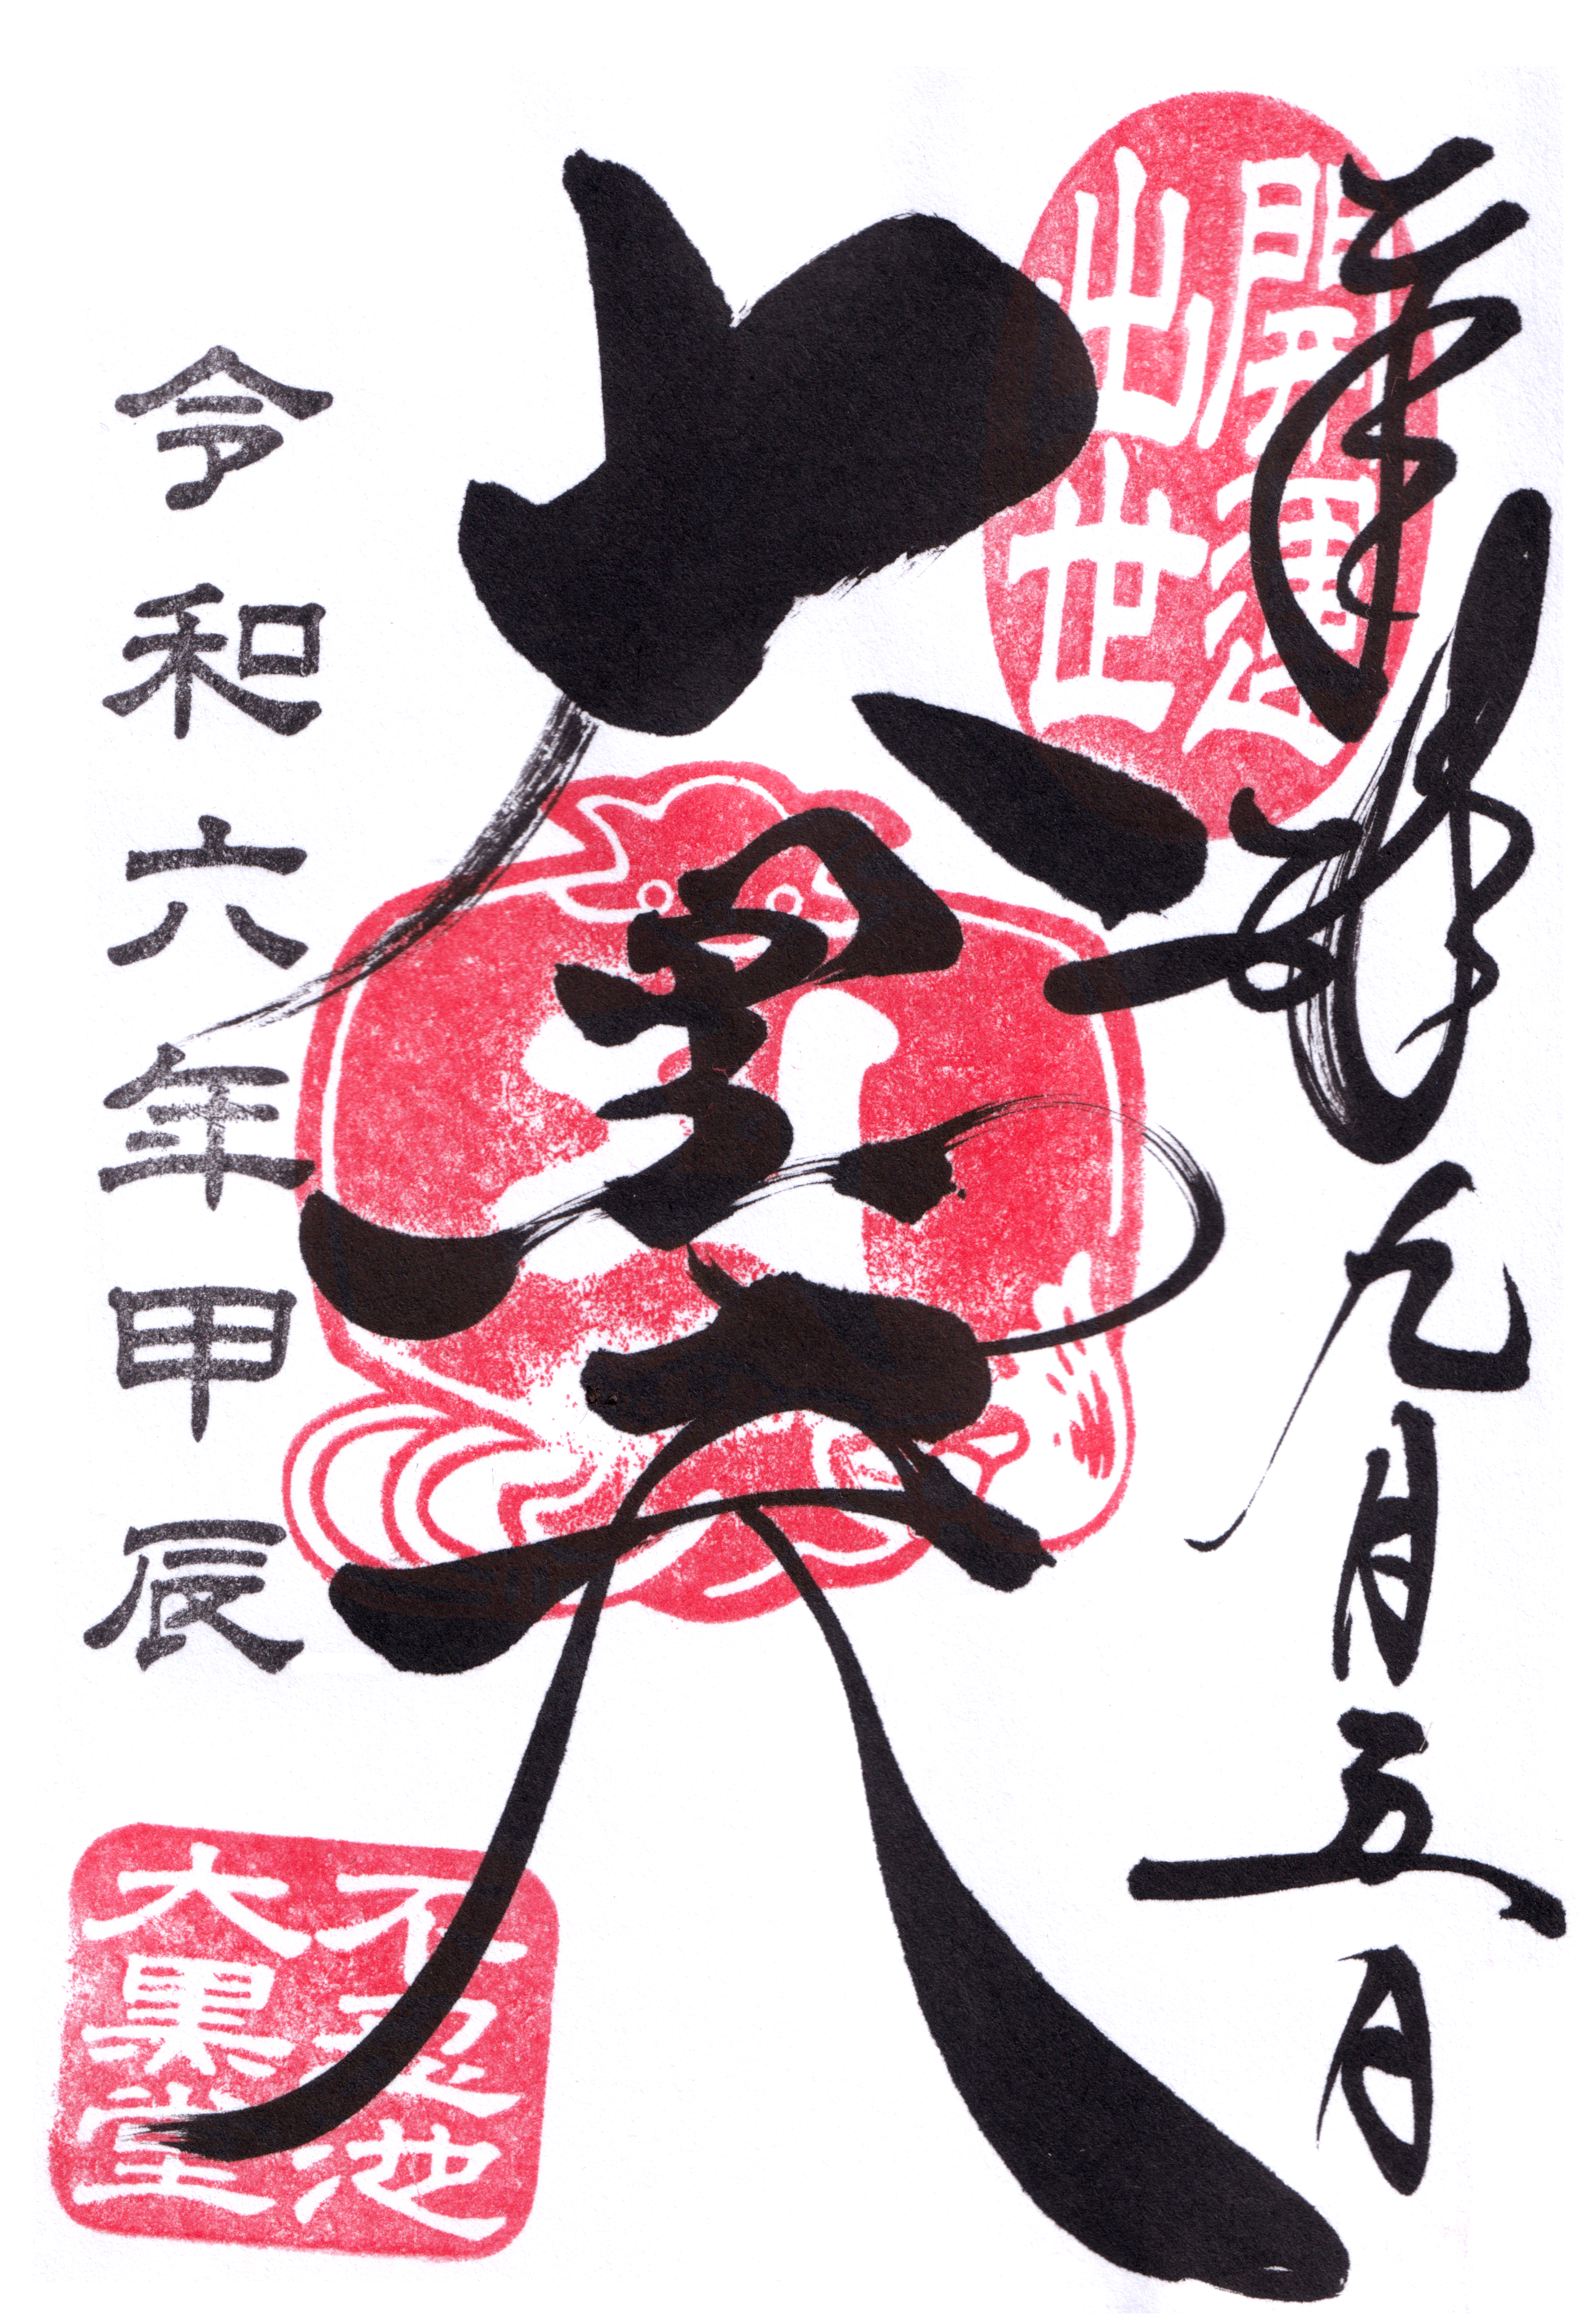 奉拝 九月五日
開運
出世
大黒天
令和六年甲辰
不忍池
大黒堂